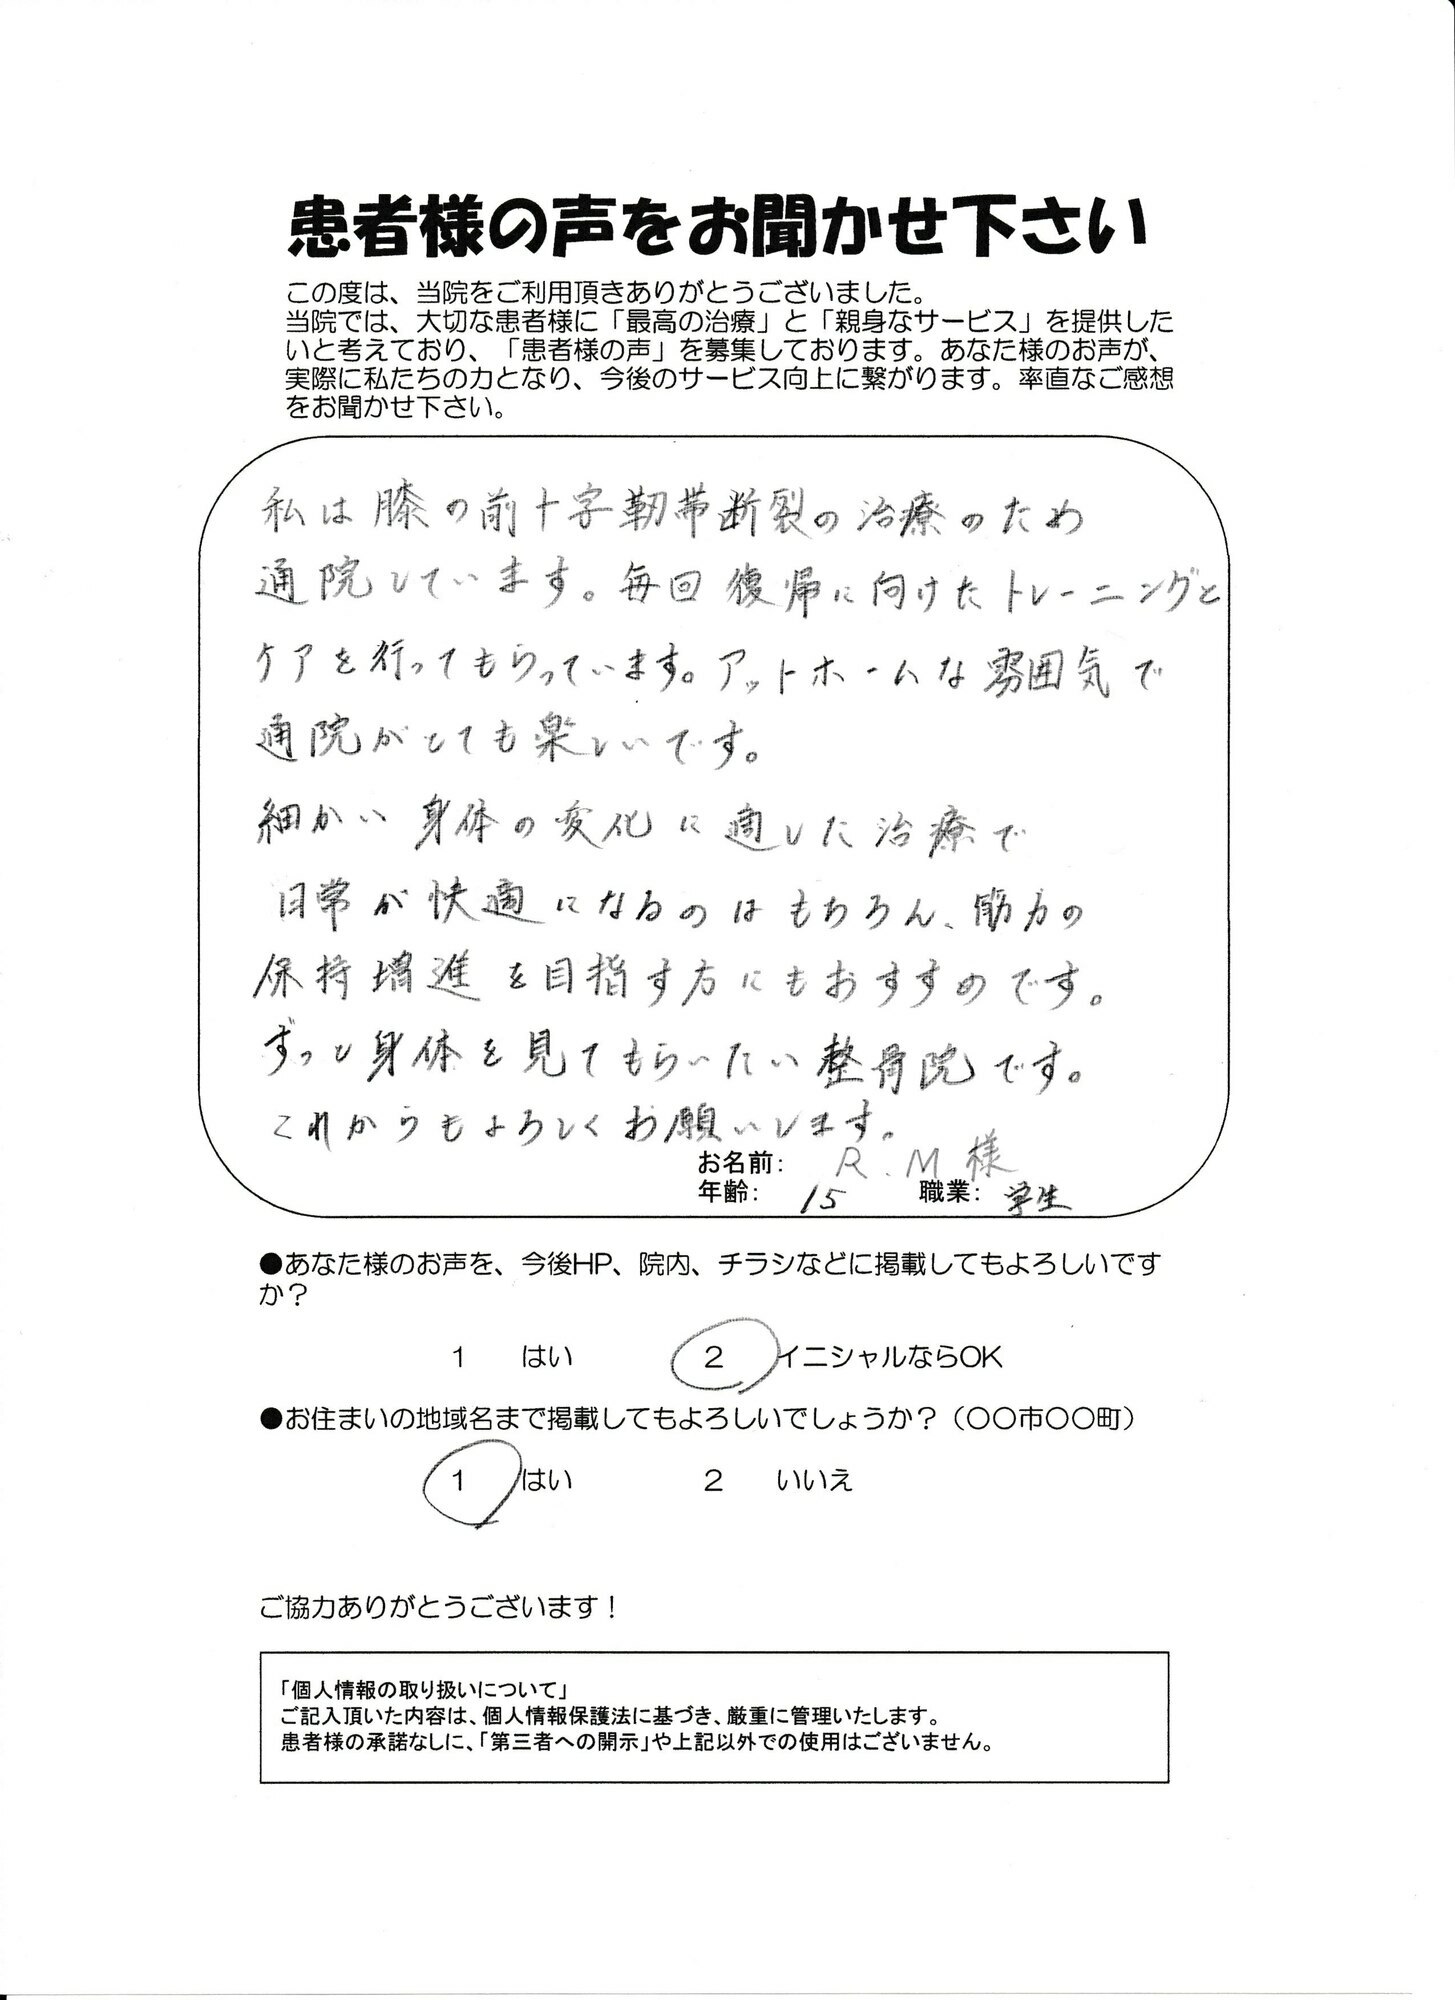 患者様の声をお聞かせ下さい
この度は、当院をご利用頂きありがとうございました。
当院では、大切な患者様に「最高の治療」と「親身なサービス」を提供した
いと考えており、「患者様の声」を募集しております。あなた様のお声が、
実際に私たちの力となり、今後のサービス向上に繋がります。率直なご感想
をお聞かせ下さい。
私は膝の前十字靭帯断裂の治療のため
通院しています。毎回復帰に向けたトレーニングと
ケアを行ってもらっています。アットホームな雰囲気で
通院がとても楽しいです。
細かい身体の変化に適した治療で
日常が快適になるのはもちろん、筋力の
保持増進を目指す方にもおすすめです。
ずっと身体を見てもらいたい整骨院です。
これからもよろしくお願いします。
お名前: R.M様
年齢: 15 職業: 学生
●あなた様のお声を、今後HP、院内、チラシなどに掲載してもよろしいです
か?
1 はい 2 イニシャルならOK
●お住まいの地域名まで掲載してもよろしいでしょうか?(〇〇市〇〇町)
1 はい 2 いいえ
ご協力ありがとうございます!
「個人情報の取り扱いについて」
ご記入頂いた内容は、個人情報保護法に基づき、厳重に管理いたします。
患者様の承諾なしに、「第三者への開示」や上記以外での使用はございません。